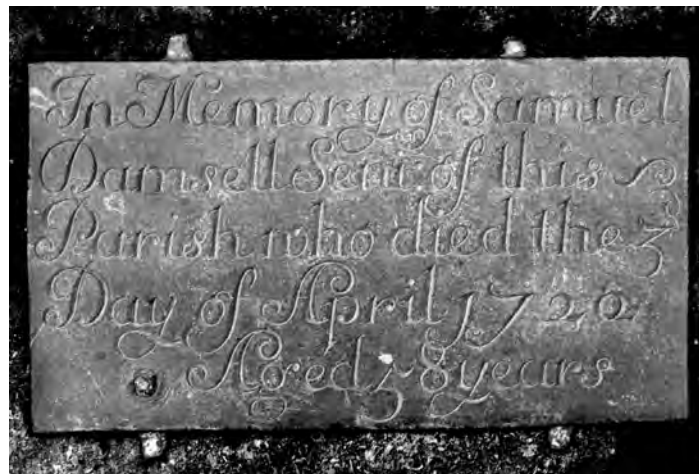 In Memory of Samuel
Damsell Senr: of this
Parish who died the 3
Day of April 1720
Aged 58 years